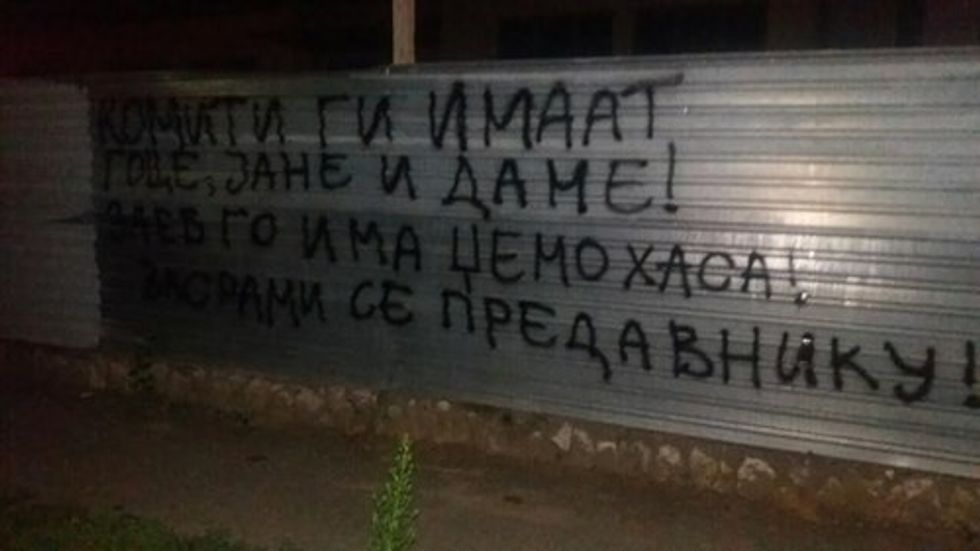 КОМИТИ ГИ ИМААТ
ГОЦЕ, ЈАНЕ И ДАМЕ!
ЗАЕВ ГО ИМА ЏЕМО ХАСА!
ЗАСРАМИ СЕ ПРЕДАВНИКУ!